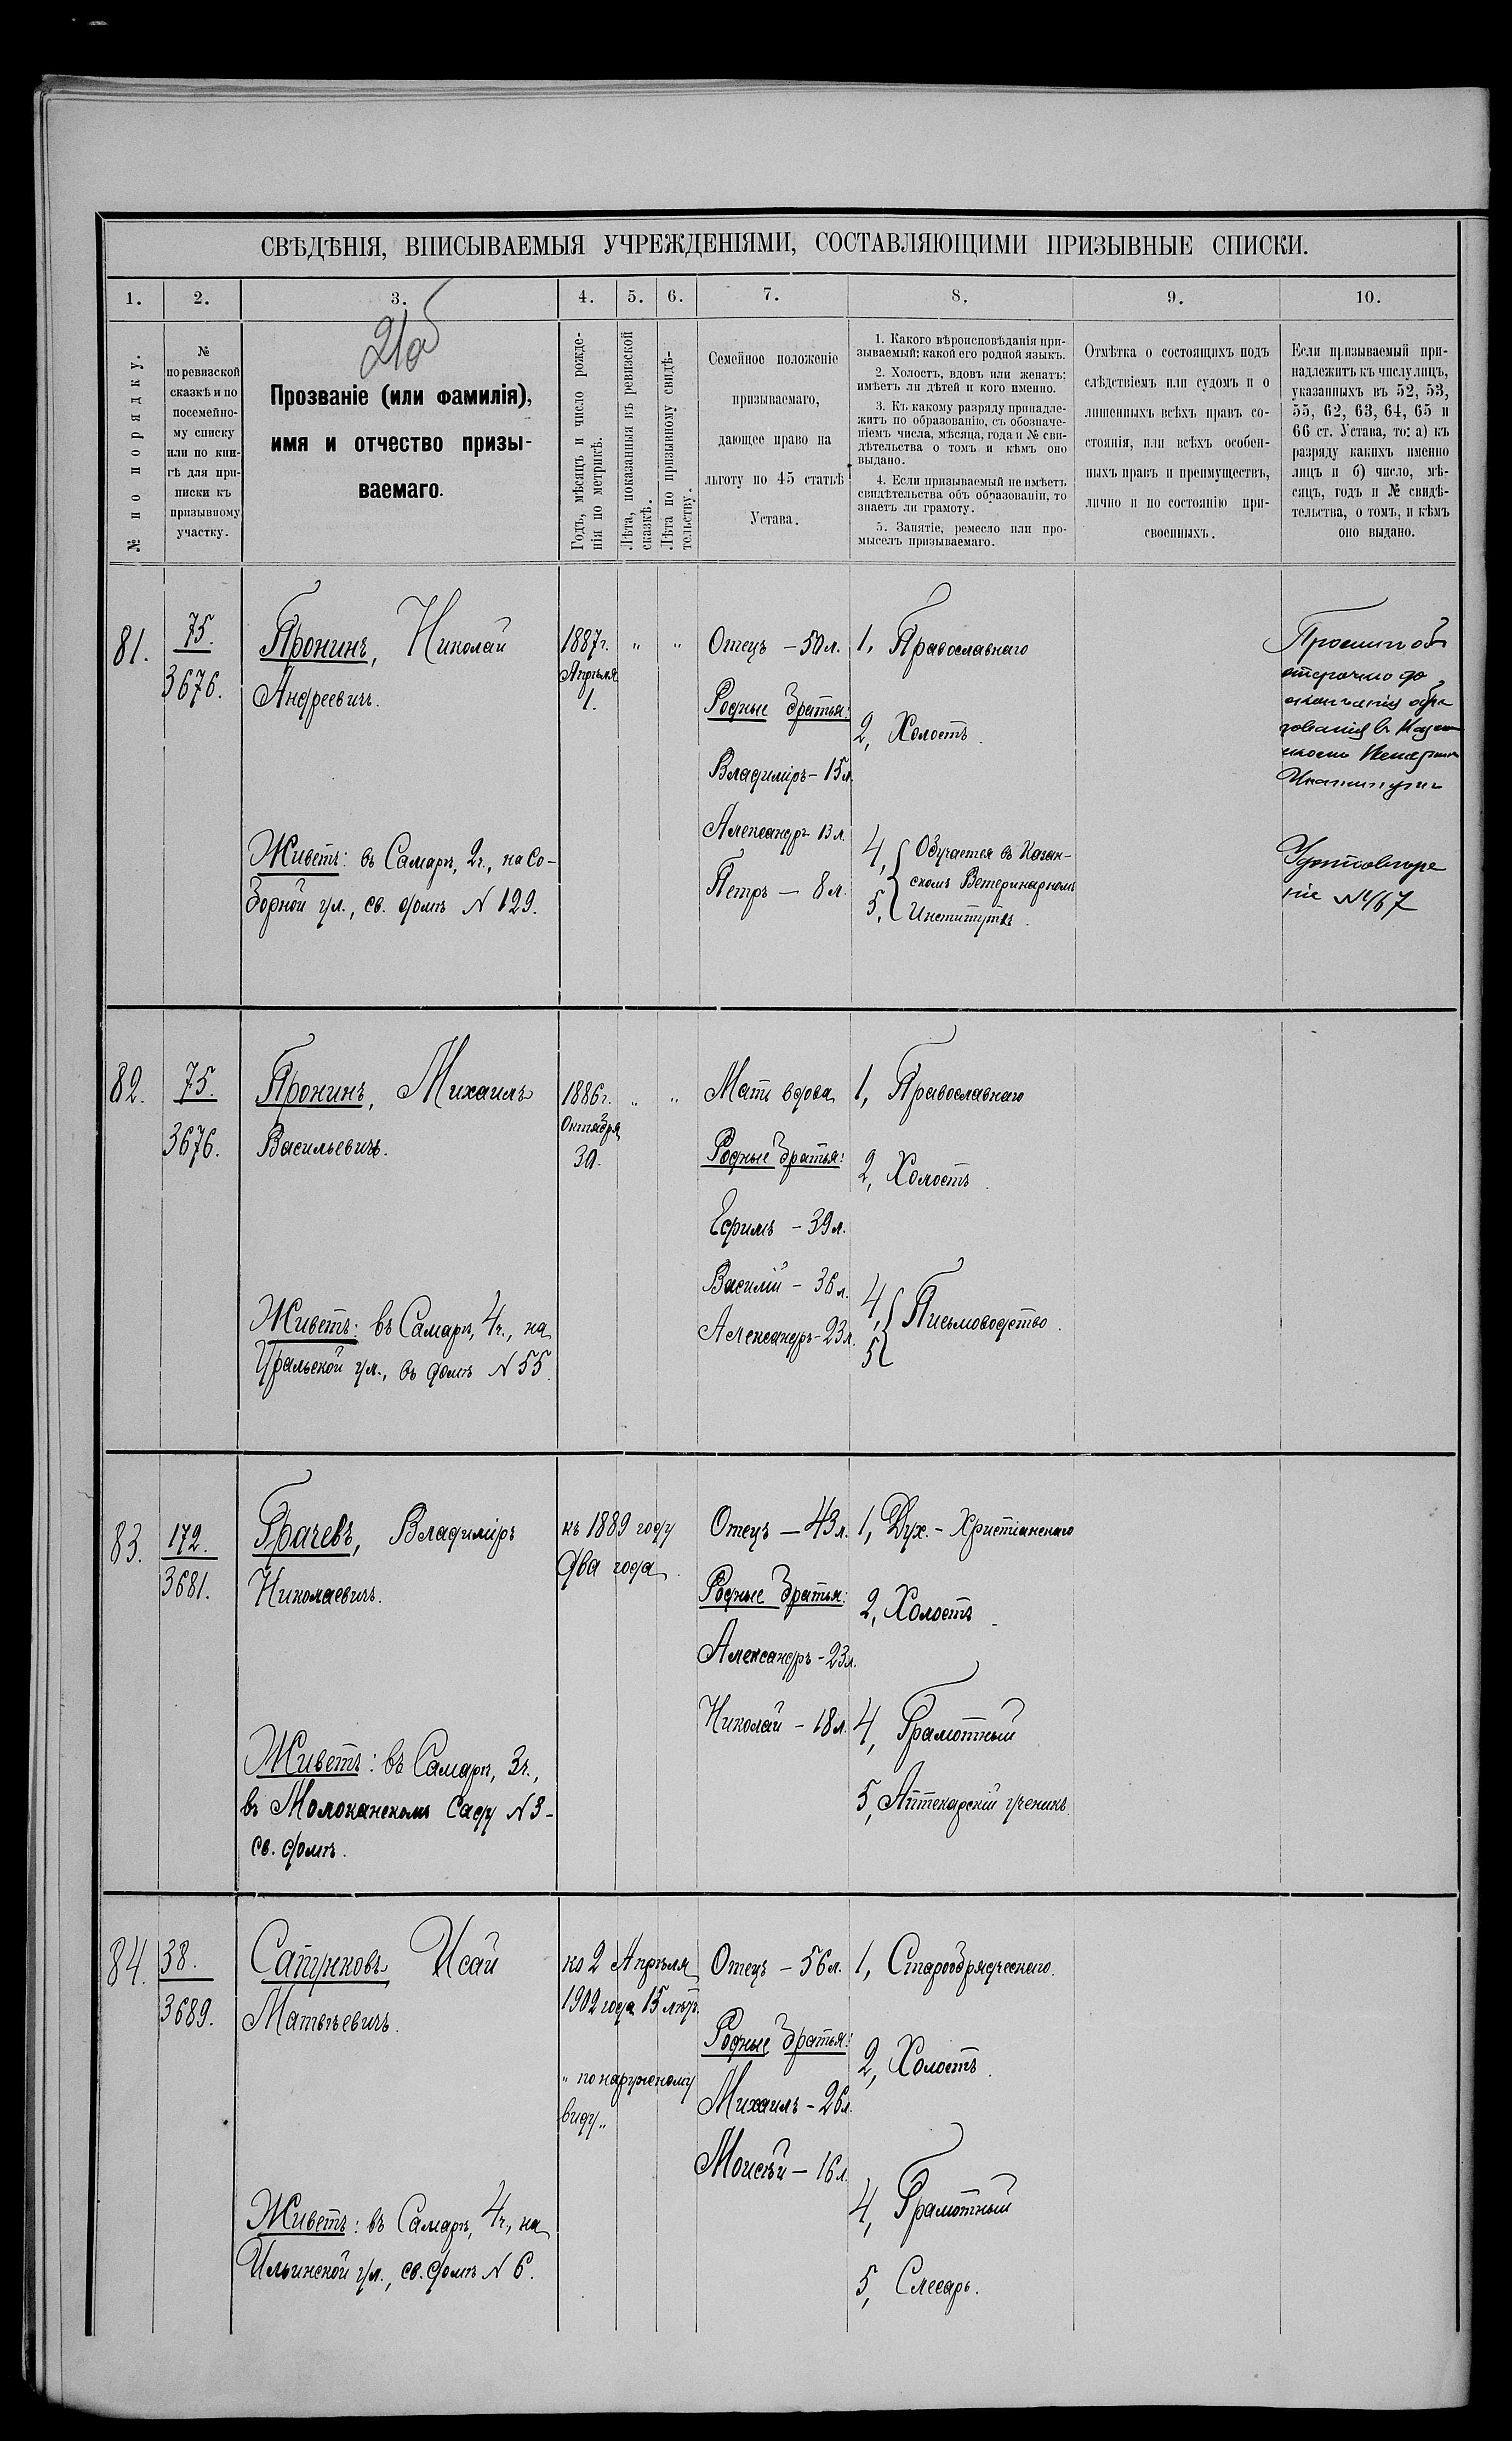 СВѢДѢНІЯ, ВПИСЫВАЕМЫЯ УЧРЕЖДЕНІЯМИ, СОСТАВЛЯЮЩИМИ ПРИЗЫВНЫЕ СПИСКИ.
1. 2. 3. 4. 5. 6. 7. 8. 9. 10.
№ по порядку.
№
по ревизской
сказкѣ и по
посемейно-
му списку
или по кни-
гѣ для при-
писки къ
призывному
участку.
21об
Прозваніе (или фамилія),
имя и отчество призы-
ваемаго.
Годъ, мѣсяцъ и число рожде-
нія по метрикѣ.
Лѣта, показанныя въ ревизской
сказкѣ.
Лѣта по призывному свидѣ-
тельству.
Семейное положеніе
призываемаго,
дающее право на
льготу по 45 статьѣ
Устава.
1. Какого вѣроисповѣданія при-
зываемый: какой его родной языкъ.
2. Холостъ, вдовъ или женатъ:
имѣетъ ли дѣтей и кого именно.
3. Къ какому разряду принадле-
житъ по образованію, съ обозначе-
ніемъ числа, мѣсяца, года и № сви-
дѣтельства о томъ и кѣмъ оно
выдано.
4. Если призываемый не имѣетъ
свидѣтельства объ образованіи, то
знаетъ ли грамоту.
5. Занятіе, ремесло или про-
мыселъ призываемаго.
Отмѣтка о состоящихъ подъ
слѣдствіемъ или судомъ и о
лишенныхъ всѣхъ правъ со-
стоянія, или всѣхъ особен-
ныхъ правъ и преимуществъ,
лично и по состоянію при-
своенныхъ.
Если призываемый при-
надлежитъ къ числу лицъ,
указанныхъ въ 52, 53,
55, 62, 63, 64, 65 и
66 ст. Устава, то: а) къ
разряду какихъ именно
лицъ и б) число, мѣ-
сяцъ, годъ и № свидѣ-
тельства, о томъ, и кѣмъ
оно выдано.
81.
75.
3676.
Пронинъ, Николай
Андреевичъ.
Живетъ: въ Самарѣ, 2ч., на Со-
борной ул., св. домъ N 129.
1887г. " "
Апрѣля
1.
Отецъ – 50 л.
Родные братья:
Владиміръ – 15 л.
Александръ 13 л.
Петръ – 8 л.
1, Православнаго
2, Холостъ.
4, Обучается въ Казан-
скомъ Ветеринарномъ
5, Институтѣ.
Проситъ об
отсрочкѣ до
окончанія обра
зованія въ Казан
скомъ Ветерин
Институтѣ
82.
75.
3676.
Пронинъ, Михаилъ
Васильевичъ.
Живетъ: въ Самарѣ, 4ч., на
Уральской ул., въ домѣ N 55.
1886г. " "
Октября
30.
Мать вдова
Родные братья:
Ефимъ – 39 л.
Василій – 36 л.
Александръ – 23 л.
1, Православнаго
2, Холостъ.
4, Письмоводство.
5
83.
172.
3681.
Грачевъ, Владиміръ
Николаевичъ.
Живетъ: въ Самарѣ, 3ч.,
въ Молоканскомъ Саду N 3 –
св. домъ.
къ 1889 году
два года.
Отецъ – 43 л.
Родные братья:
Александръ – 23 л.
Николай – 18 л.
1, Дух. – Христіанскаго
2, Холостъ.
4, Грамотный
5, Аптекарскій ученикъ.
84.
38.
3689.
Сапунковъ Исай
Матвѣевичъ.
Живетъ: въ Самарѣ, 4ч., на
Ильинской ул., св. домъ N 6.
ко 2 Апрѣля
1902 года 15 лѣтъ.
" по наружному
виду "
Отецъ – 56 л.
Родные братья:
Михаилъ – 26 л.
Моисѣй – 16 л.
1, Старообрядческаго.
2, Холостъ.
4, Грамотный
5, Слесарь.